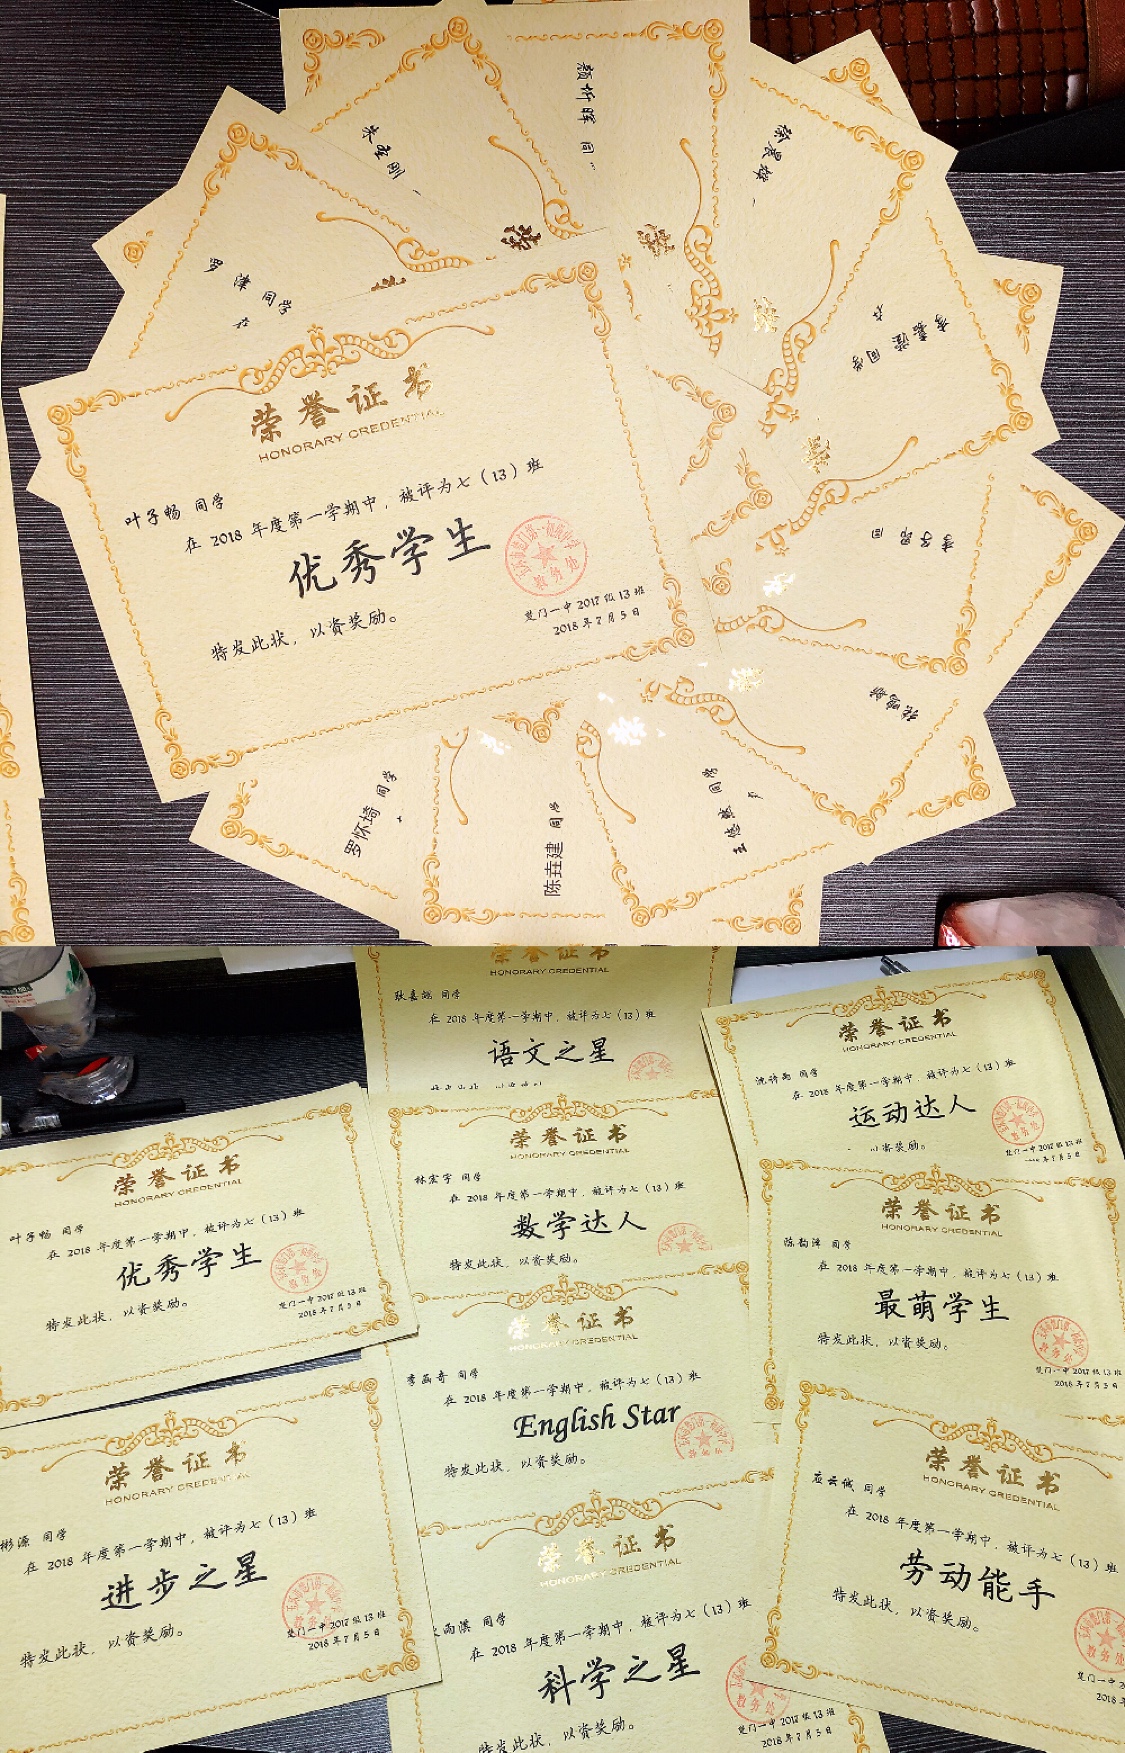 颜忻晖 同
罗 津 同学
在
同学
在
李子昂 同
荣誉证书
HONORARY CREDENTIAL
叶子畅 同学
在 2018 年度第一学期中，被评为七（13）班
优秀学生
特发此状，以资奖励。
楚门一中 2017 级 13 班
2018 年 7 月 5 日
罗怀埼 同学
陈垚建 同学
同学
荣誉证书
HONORARY CREDENTIAL
同学
在 2018 年度第一学期中，被评为七（13）班
语文之星
特发此状，以资奖励
荣誉证书
HONORARY CREDENTIAL
沈诗雨 同学
在 2018 年度第一学期中，被评为七（13）班
运动达人
以资奖励。
楚门一中 2017 级 13 班
2018 年 7 月 5 日
荣誉证书
HONORARY CREDENTIAL
叶子畅 同学
在 2018 年度第一学期中，被评为七（13）班
优秀学生
特发此状，以资奖励。
楚门一中 2017 级 13 班
2018 年 7 月 5 日
荣誉证书
HONORARY CREDENTIAL
林宏宇 同学
在 2018 年度第一学期中，被评为七（13）班
数学达人
特发此状，以资奖励。
荣誉证书
HONORARY CREDENTIAL
陈韵泽 同学
在 2018 年度第一学期中，被评为七（13）班
最萌学生
特发此状，以资奖励。
楚门一中 2017 级 13 班
2018 年 7 月 5 日
荣誉证书
HONORARY CREDENTIAL
李函奇 同学
在 2018 年度第一学期中，被评为七（13）班
English Star
特发此状，以资奖励。
荣誉证书
HONORARY CREDENTIAL
彬源 同学
在 2018 年度第一学期中，被评为七（13）班
进步之星
特发此状，以资奖励。
楚门一中 2017 级 13 班
2018 年 7 月 5 日
荣誉证书
HONORARY CREDENTIAL
应云诚 同学
在 2018 年度第一学期中，被评为七（13）班
劳动能手
特发此状，以资奖励。
楚门一中 2
2018 年
荣誉证书
HONORARY CREDENTIAL
雨淇 同学
在 2018 年度第一学期中，被评为七（13）班
科学之星
特发此状，以资奖励。
教务处
楚门一中 2017 级 13 班
2018 年 7 月 5 日